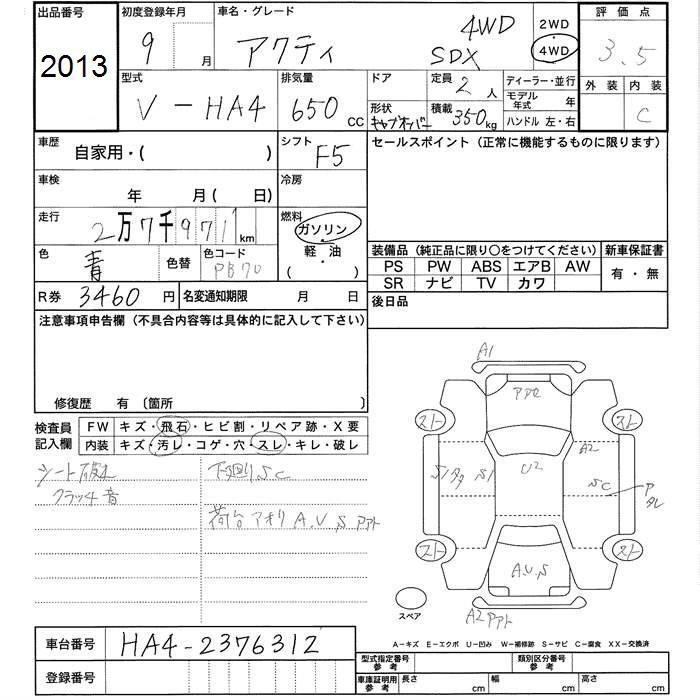 出品番号 初度登録年月 車名・グレード 評価点
2013 9月 アクティ 4WD SDX 2WD ・ 4WD 3.5
型式 排気量 ドア 定員 2人 ディーラー・並行 外装 内装
V-HA4 650cc 形状 キャブオーバー 積載 350kg モデル年式 年 ハンドル 左・右 C
車歴 自家用・( ) シフト F5 セールスポイント(正常に機能するものに限ります)
車検 年 月( 日) 冷房
走行 2万7千971km 燃料 ガソリン
色 青 色替 色コード PB70 軽・油 ( )
装備品(純正品に限り○をつけてください) 新車保証書
PS PW ABS エアB AW 有・無
SR ナビ TV カワ
R券 3460円 名変通知期限 月 日 後日品
注意事項申告欄(不具合内容等は具体的に記入して下さい)
修復歴 有 〔箇所 〕
検査員記入欄 FW キズ・飛石・ヒビ割・リペア跡・X要
内装 キズ・汚レ・コゲ・穴・スレ・キレ・破レ
シート 下廻りSC
クラッチ音
荷台アオリ A.U.S アト
A1
アセ
スト スト
A2
S1 S1 U2
SC
スト スト
A.U.S
スペア A2
車台番号 HA4-2376312
登録番号
A-キズ E-エクボ U-凹み W-補修跡 S-サビ C-腐食 XX-交換済
型式指定番号 参考 類別区分番号 参考
車庫証明用 参考 長さ cm 幅 cm 高さ cm